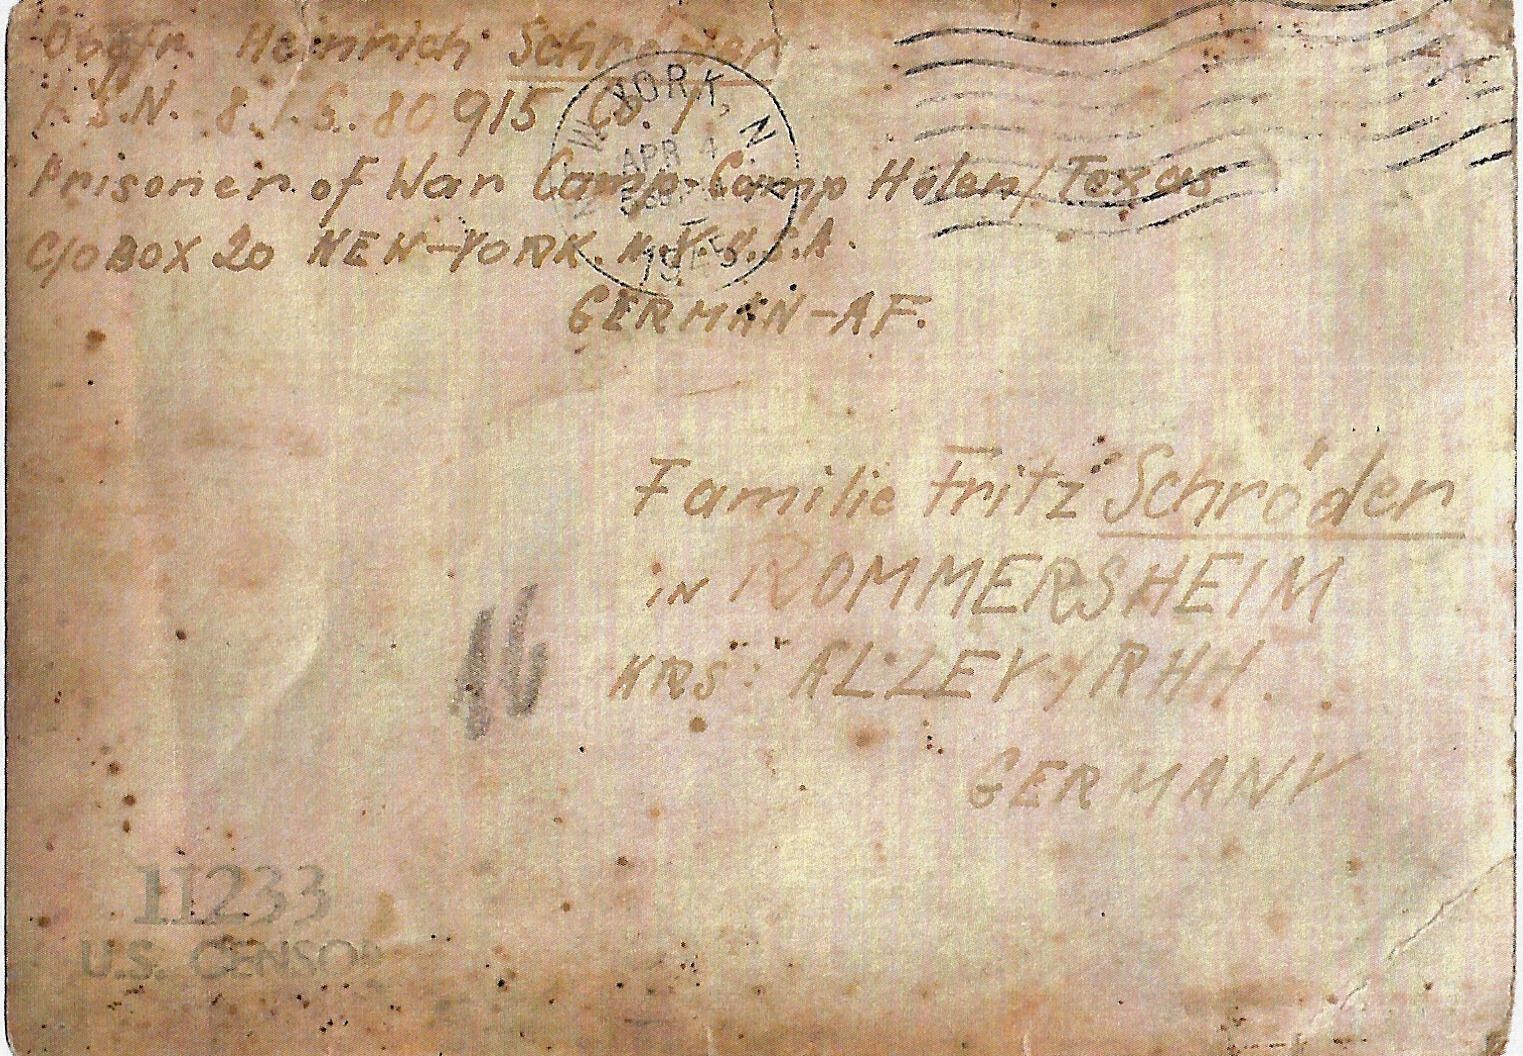 Obgfr. Heinrich Schröder
I.S.N. 8.I.G. 80915 Co. 1
Prisoner of War Camp. Camp Hölen/Texas
C/O BOX 20 NEW-YORK. N.Y. U.S.A.
GERMAN-AF.
NEW YORK, N
APR 4
5
1945
Familie Fritz Schröder
in ROMMERSHEIM
KRS: ALZEY, RHH.
GERMANY
16
11233
U.S. CENSOR